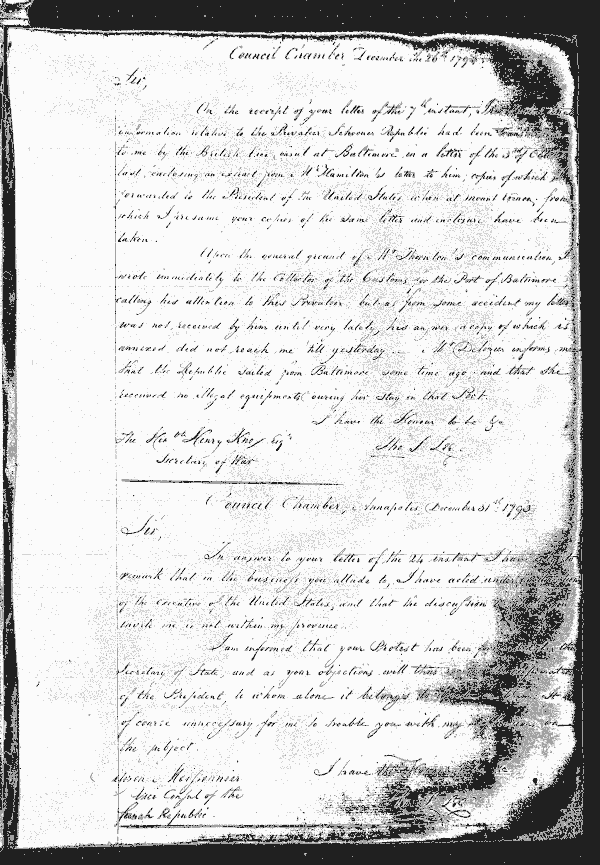 Council Chamber December the 26th 179
Sir,
On the receipt of your letter of the 7th instant, the
information relative to the Privateer Schooner Republic had been
to me by the British Vice Consul at Baltimore in a letter of the 3d of
last, enclosing an extract from Mr Hamilton's letter to him, copies of which
forwarded to the President of the United States when at mount Vernon; from
which I presume your copies of the same letter and enclosure have been
taken.
Upon the general ground of Mr Thornton's communication, I
wrote immediately to the Collector of the Customs for the Port of Baltimore
calling his attention to this Privateer but as from some accident my letter
was not received by him until very lately, his answer a copy of which is
annexed did not reach me 'till yesterday. Mr Delozier informs me
that the Republic sailed from Baltimore some time ago and that she
received no illegal equipments during her stay in that Port.
I have the Honour to be &c
The Honble Henry Knox Esqr
Tho S. Lee.
Secretary of War
Council Chamber, Annapolis December 31st 1793
Sir,
In answer to your letter of the 24 instant I have to
remark that in the business you allude to, I have acted under
of the executive of the United States, and that the discussion
invite me is not within my province.
I am informed that your Protest has been the
Secretary of State, and as your objections will thus
of the President, to whom alone it belongs to It is
of course unnecessary for me to trouble you with my on
the subject.
I have the Honour
Vice Consul of the
French Republic.
Tho S. Lee